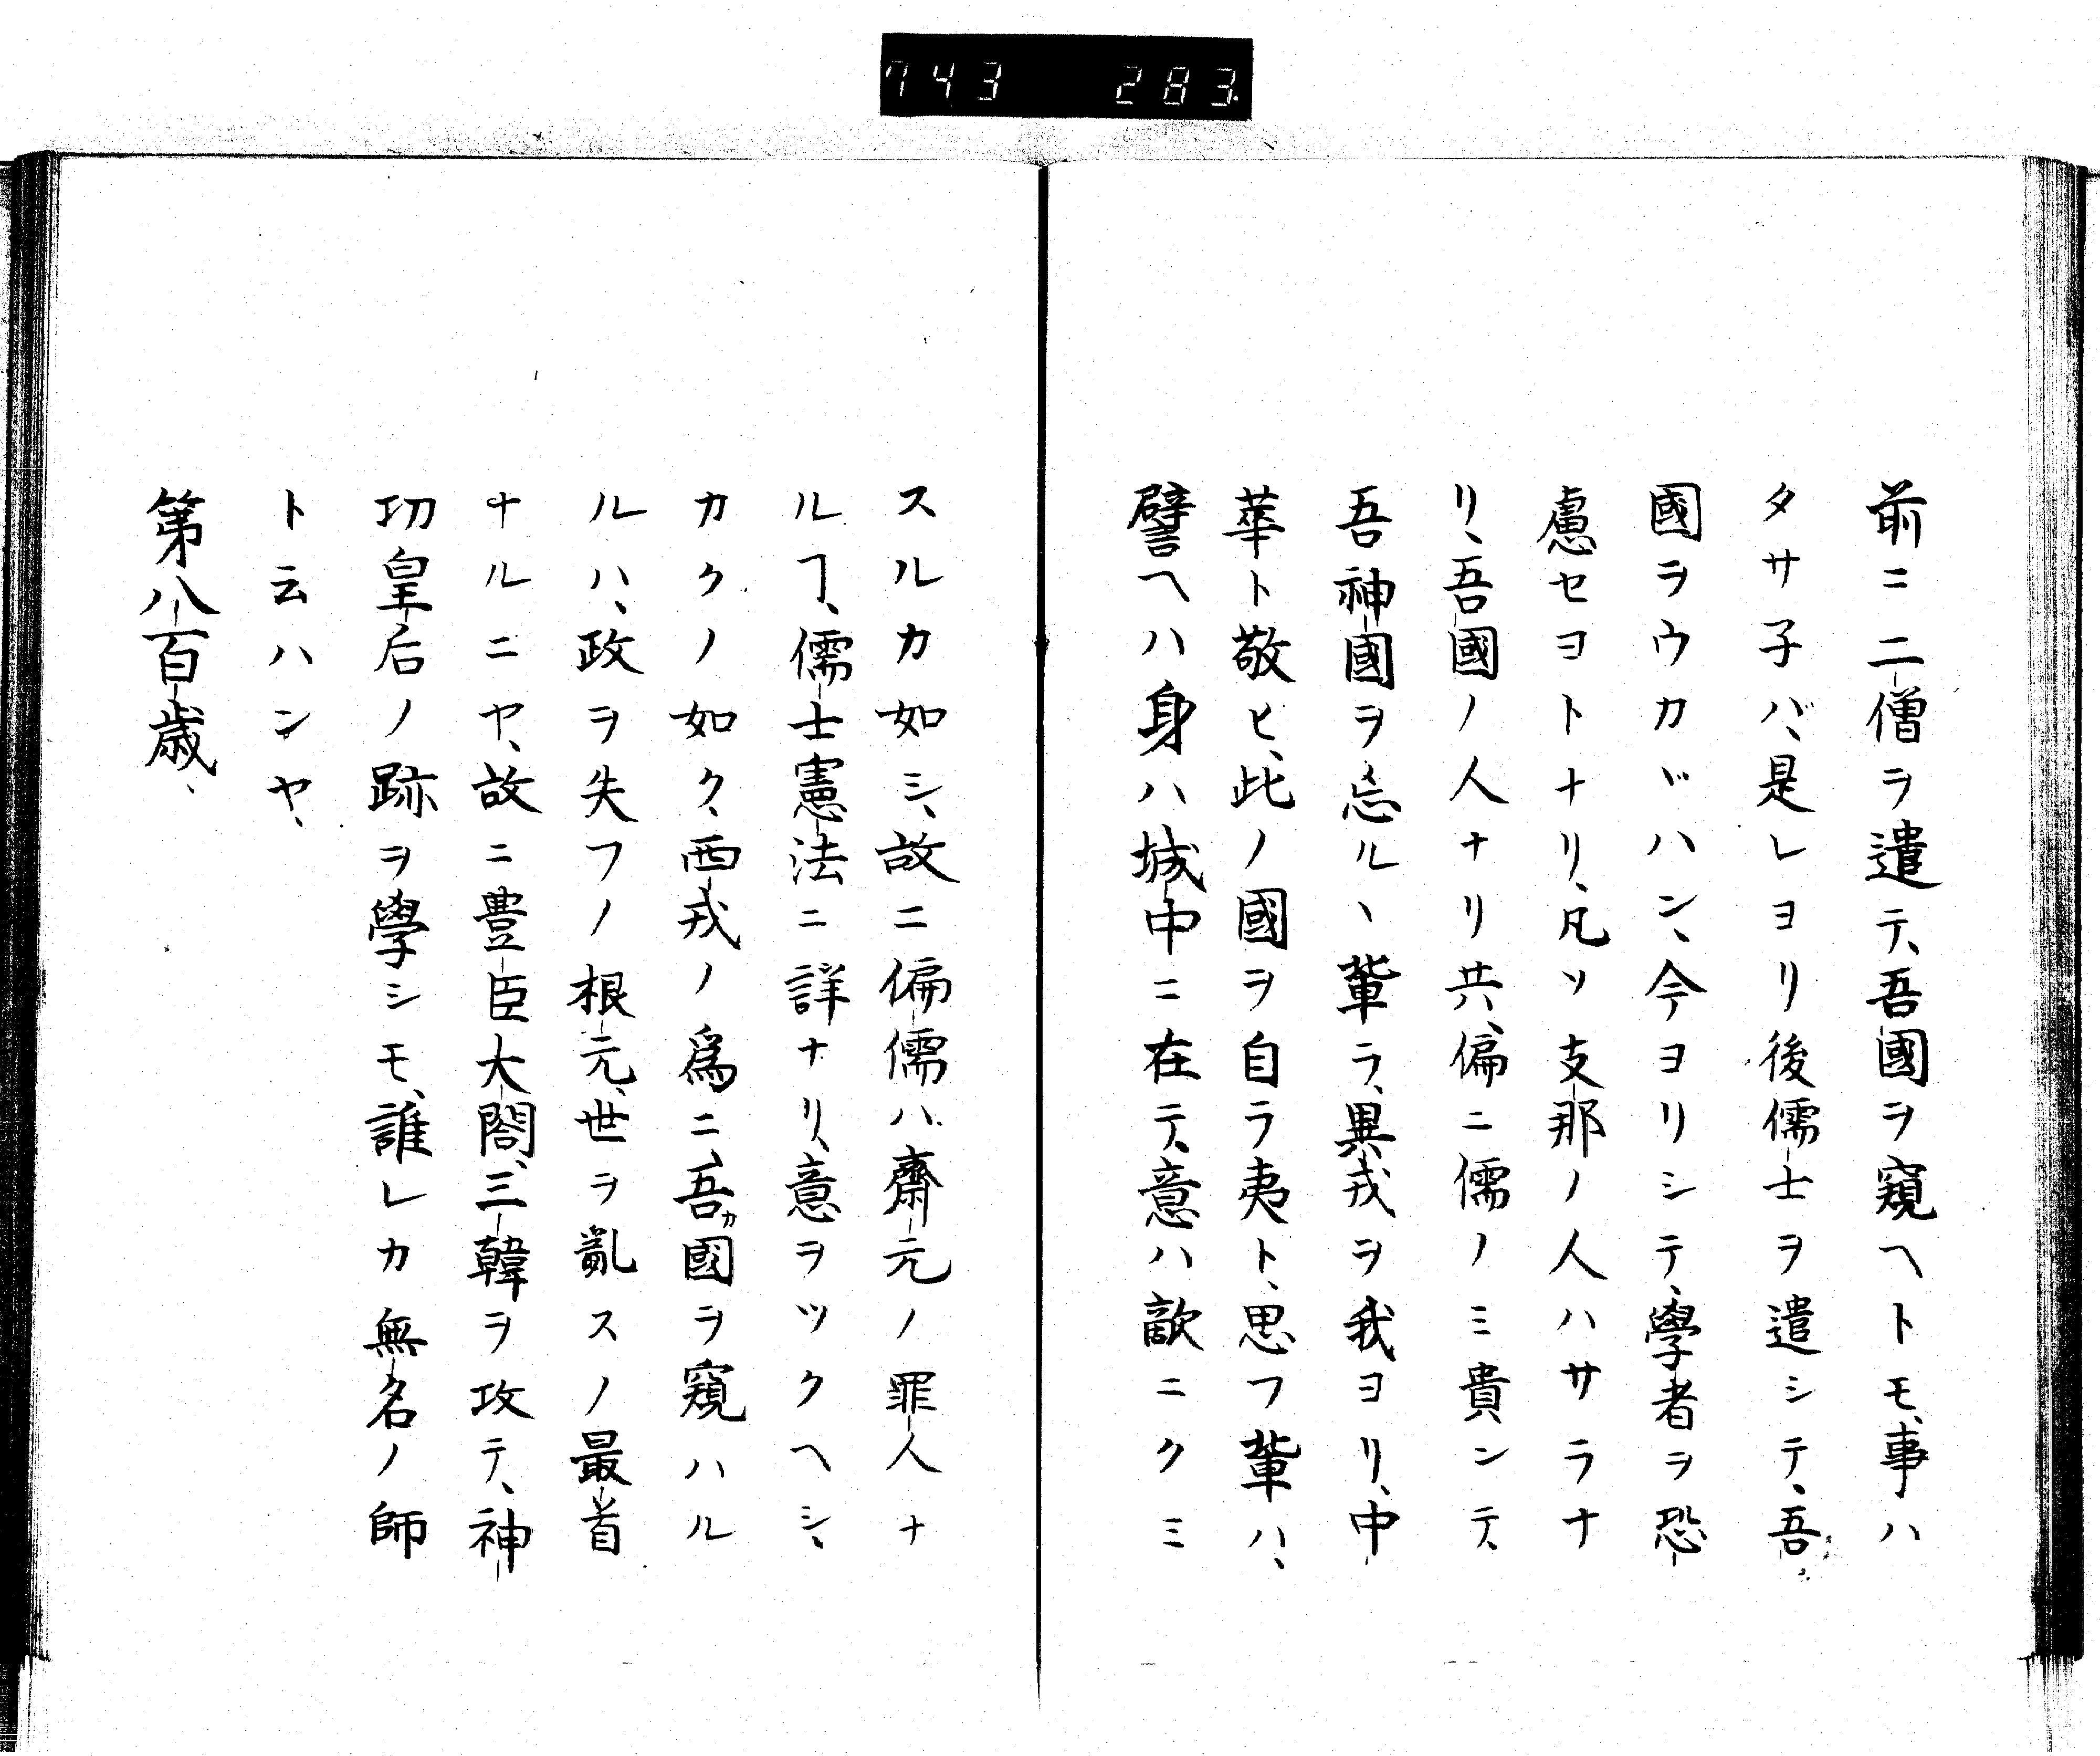 743 283.
前ニ二僧ヲ遣テ、吾國ヲ窺ヘトモ、事ハ
タサ子バ、是レヨリ後儒士ヲ遣シテ、吾
國ヲウカヾハン、今ヨリシテ、學者ヲ恐
慮セヨトナリ、凡ソ支那ノ人ハサラナ
リ、吾國ノ人ナリ共、偏ニ儒ノミ貴ンテ、
吾神國ヲ忘ルヽ輩ラ、異戎ヲ我ヨリ、中
華ト敬ヒ、此ノ國ヲ自ラ夷ト、思フ輩ハ、
譬ヘハ身ハ城中ニ在テ、意ハ敵ニクミ
スルカ如シ、故ニ偏儒ハ、齋元ノ罪人ナ
ルヿ、儒士憲法ニ詳ナリ、意ヲツクヘシ、
カクノ如ク、西戎ノ爲ニ、吾カ國ヲ窺ハル
ルハ、政ヲ失フノ根元、世ヲ亂スノ最首
ナルニヤ、故ニ豊臣大閤、三韓ヲ攻テ、神
功皇后ノ跡ヲ學シモ、誰レカ無名ノ師
ト云ハンヤ、
第八百歳、